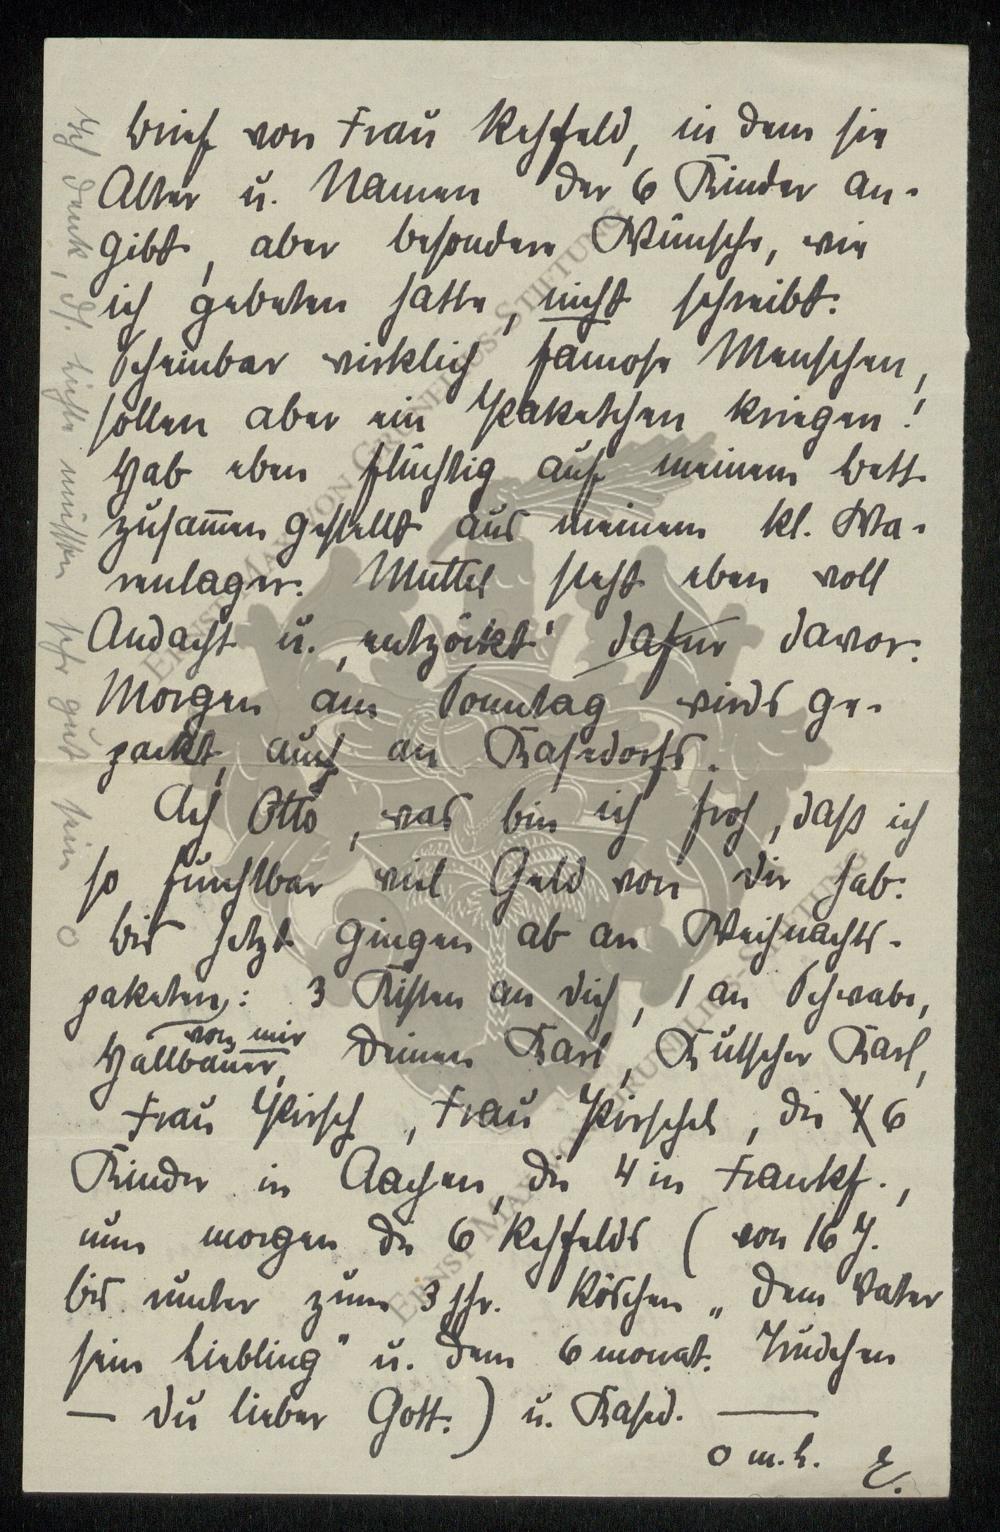 Brief von Frau Rehfeld, in dem sie
Alter u. Namen der 6 Kinder an-
gibt, aber besondere Wünsche, wie
ich gebeten hatte, nicht schreibt.
Scheinbar wirklich famose Menschen,
sollen aber ein Paketchen kriegen!
Hab eben flüchtig auf meinem Bett
zusammengestellt aus meinem kl. Wa-
renlager. Muttel steht eben voll
Andacht u. „entzückt‘ dafür davor.
Morgen am Sonntag wirds ge-
packt, auch an Kasedorfs.
Ach Otto, was bin ich froh, daß ich
so furchtbar viel Geld von dir hab.
Bis jetzt gingen ab an Weihnachts-
paketen: 3 Kisten an dich, 1 an Schwabe,
von mir
Hallbauer, Deinen Karl, Kutscher Karl,
Frau Pirsch, Frau Pirschel, die 6
Kinder in Aachen, die 4 in Frankf.,
nun morgen die 6 Rehfelds (von 16 J.
bis runter zum 3 jhr. Röschen „dem Vater
sein Liebling" u. dem 6 monat. Trudchen
— du lieber Gott.) u. Kased. —
o m. L. E.
Ich denk, ds. Lichte müssen sehr gut sein o
ERNST-MAX-VON-GRUNELIUS-STIFTUNG
ERNST-MAX-VON-GRUNELIUS-STIFTUNG